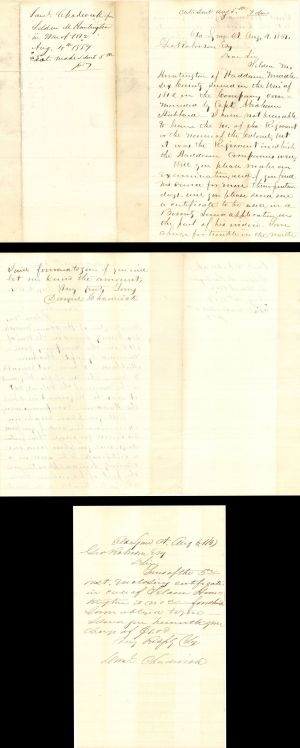 Saml. Chadwick for
Selden M. Huntington
in War of 1812
Aug. 4th 1857
Aug 5th
Aug. 4, 1857.
Geo Robinson Esq
Dear Sir
Selden M.
Huntington of Haddam Middle
sex County served in the War of
1812 in the Company com
manded by Capt
Hubbard I have not been able
to learn the no. of the Regiment
or the name of the Colonel, but
it was the Regiment in which
the Haddam Companies were,
Will you please make an
examination, and if you find
he served for more than fourteen
days, will you please send me
a certificate to be used in a
Bounty Land application, on
the part of his widow Your
charge for trouble in the matter
I will forward to you if you will
let me know the amount,
Very Resp Yours
Samuel Chadwick
Aug 6, 1857
Geo Robinson Esq
Sir
Yours of the 5th
inst, enclosing certificate
in case of Selden Hun
tington is rec'd
I am obliged to you
I send you herewith your
charge of $1.00
Very Respfly Yrs
Saml Chadwick